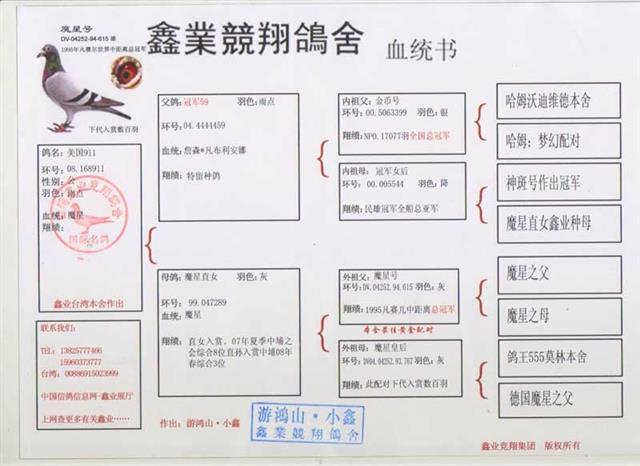 魔星号
DV-04252-94-615 雄
1995年凡赛尔世界中距离总冠军
鑫業競翔鴿舍 血统书
下代入赏数百羽
鸽名：美国911
环号：08.168911
性别：公
羽色：雨点
血统：魔星
翔绩：
国际名鸽
鑫业台湾本舍作出
联系我们：
TEL： 13825777466
15960373777
台湾： 00886915023999
中国信鸽信息网-鑫业展厅
上网查更多有关鑫业……
父鸽：冠军59 羽色：雨点
环号：04.4444459
血统：詹森*凡布利安娜
翔绩：特留种鸽
母鸽：魔星直女 羽色：灰
环号：99.047289
血统：魔星
翔绩：直女入赏、07年夏季中埔之
会综合8位直孙入赏中埔08年
春综合3位
作出：游鸿山·小鑫
游鴻山·小鑫
鑫業競翔鴿舍
内祖父：金币号
环号：00.5063399 羽色：银
翔绩：NPO.17077羽全国总冠军
内祖母：冠军女后
环号：00.005544 羽色：降
翔绩：民雄冠军全船总亚军
外祖父：魔星号
环号：DV.04252.94.615 羽色：灰
翔绩：1995凡赛儿中距离总冠军
本舍最佳黄金配对
外祖母：魔星皇后
环号：DV04.04252.93.767 羽色：灰
翔绩：此配对下代入赏数百羽
哈姆沃迪维德本舍
哈姆：梦幻配对
神斑号作出冠军
魔星直女鑫业种母
魔星之父
魔星之母
鸽王555莫林本舍
德国魔星之父
鑫业竞翔集团 版权所有